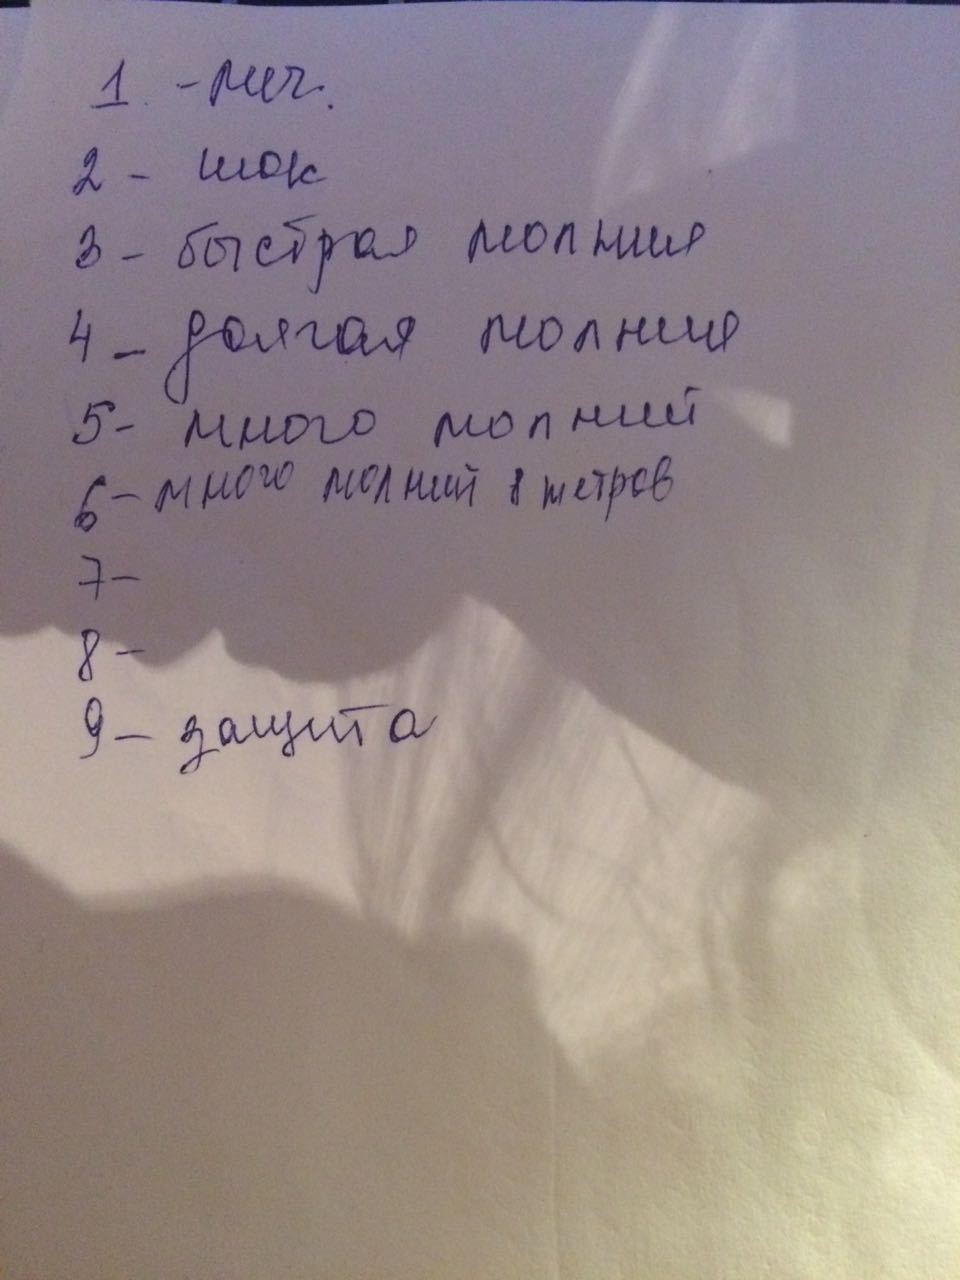 1 - меч.
2 - шок
3 - быстрая молния
4 - долгая молния
5 - много молний
6 - много молний 8 метров
7 -
8 -
9 - защита